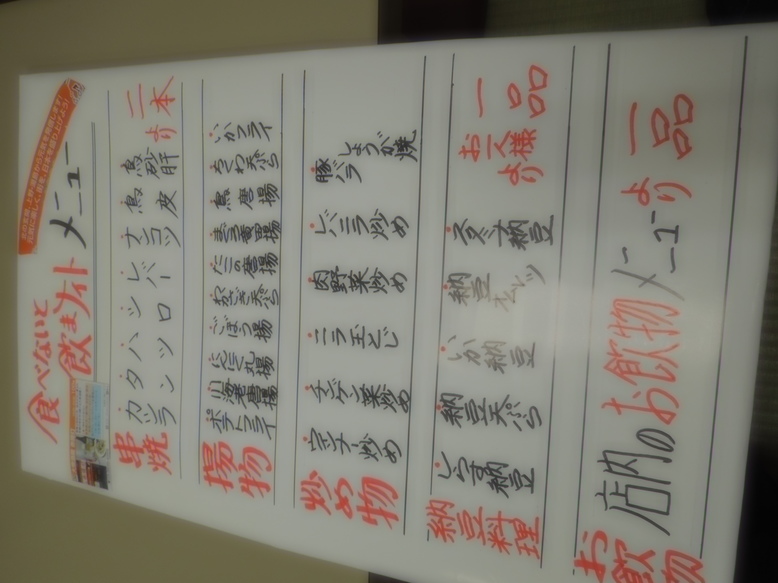 食べないと
飲まナイト
メニュー
串焼
カシラ
タン
ハツ
シロ
レバー
ナンコツ
鳥皮
鳥砂肝
二本
より
揚物
ポテトフライ
川海老唐揚
にんにく丸揚
ごぼう揚
わかさぎ天ぷら
たこの唐揚
鳥唐揚
ちくわ天ぷら
いかフライ
炒め物
ウインナー炒め
チンゲン菜炒め
ニラ玉とじ
肉野菜炒め
レバニラ炒め
豚バラ
しょうが焼
納豆料理
しらす納豆
納豆天ぷら
いか納豆
納豆オムレツ
納豆
お一人様より
一品
お飲物
店内のお飲物メニューより一品